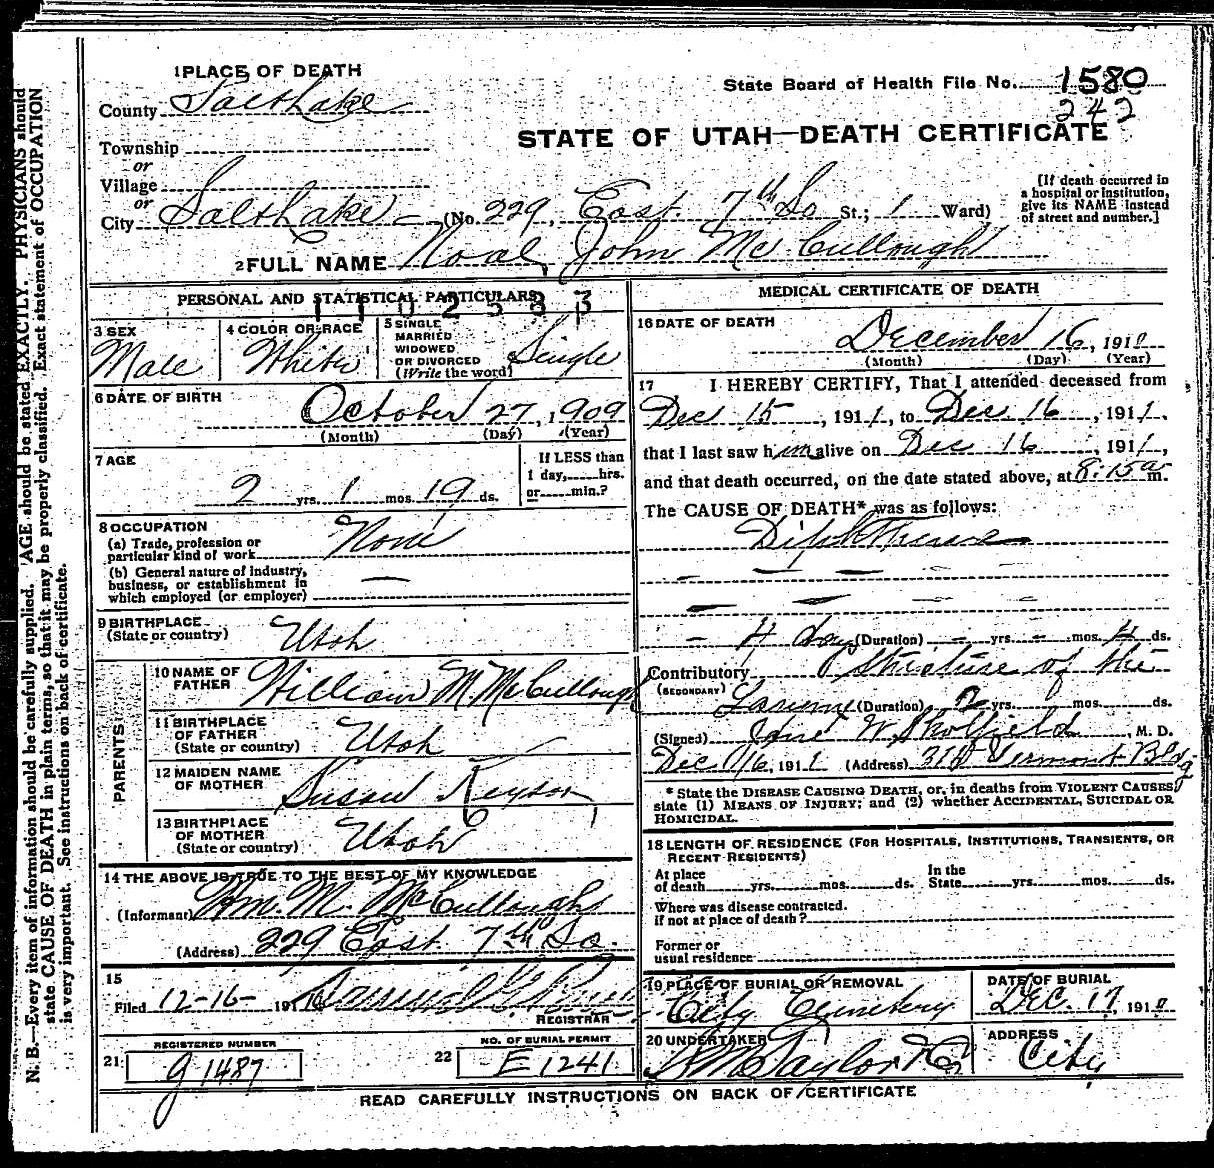 1 PLACE OF DEATH
County Salt Lake
State Board of Health File No. 1580
242
Township
or
Village
or
STATE OF UTAH—DEATH CERTIFICATE
City Salt Lake (No. 229, East 7th So St.; 1 Ward)
[If death occurred in a hospital or institution, give its NAME instead of street and number.]
2 FULL NAME Noal John McCullough
PERSONAL AND STATISTICAL PARTICULARS
1102583
3 SEX
Male
4 COLOR OR RACE
White
5 SINGLE
MARRIED
WIDOWED
OR DIVORCED
(Write the word)
Single
6 DATE OF BIRTH
October 27, 1909
(Month) (Day) (Year)
7 AGE
2 yrs. 1 mos. 19 ds.
If LESS than
1 day, hrs.
or min.?
8 OCCUPATION
(a) Trade, profession or
particular kind of work
None
(b) General nature of industry,
business, or establishment in
which employed (or employer)
9 BIRTHPLACE
(State or country)
Utah
PARENTS
10 NAME OF
FATHER
William M. McCullough
11 BIRTHPLACE
OF FATHER
(State or country)
Utah
12 MAIDEN NAME
OF MOTHER
Susan Keyson
13 BIRTHPLACE
OF MOTHER
(State or country)
Utah
14 THE ABOVE IS TRUE TO THE BEST OF MY KNOWLEDGE
(Informant) Wm. M. McCullough
(Address) 229 East 7th So.
15
Filed 12-16- 191
REGISTRAR
REGISTERED NUMBER
21 g 1487
NO. OF BURIAL PERMIT
22 E 1241
MEDICAL CERTIFICATE OF DEATH
16 DATE OF DEATH
December 16, 1911
(Month) (Day) (Year)
17 I HEREBY CERTIFY, That I attended deceased from
Dec 15, 1911, to Dec 16, 1911,
that I last saw him alive on Dec 16 1911,
and that death occurred, on the date stated above, at 8:15 a m.
The CAUSE OF DEATH* was as follows:
Diphtheria
4 days (Duration) yrs. mos. 4 ds.
Contributory Stricture of the
(SECONDARY) Larynx (Duration) 2 yrs. mos. ds.
(Signed) W. Sholfield, M. D.
Dec 16, 1911 (Address) 310 Vermont Bldg
* State the DISEASE CAUSING DEATH, or, in deaths from VIOLENT CAUSES,
state (1) MEANS OF INJURY; and (2) whether ACCIDENTAL, SUICIDAL OR
HOMICIDAL.
18 LENGTH OF RESIDENCE (FOR HOSPITALS, INSTITUTIONS, TRANSIENTS, OR
RECENT RESIDENTS)
At place
of death yrs. mos. ds.
In the
State yrs. mos. ds.
Where was disease contracted.
if not at place of death?
Former or
usual residence
19 PLACE OF BURIAL OR REMOVAL
City Cemetery
DATE OF BURIAL
Dec. 17, 1911
20 UNDERTAKER
S M Taylor & Co
ADDRESS
City
READ CAREFULLY INSTRUCTIONS ON BACK OF CERTIFICATE
N. B.—Every item of information should be carefully supplied. AGE should be stated EXACTLY. PHYSICIANS should
state CAUSE OF DEATH in plain terms, so that it may be properly classified. Exact statement of OCCUPATION
is very important. See instructions on back of certificate.